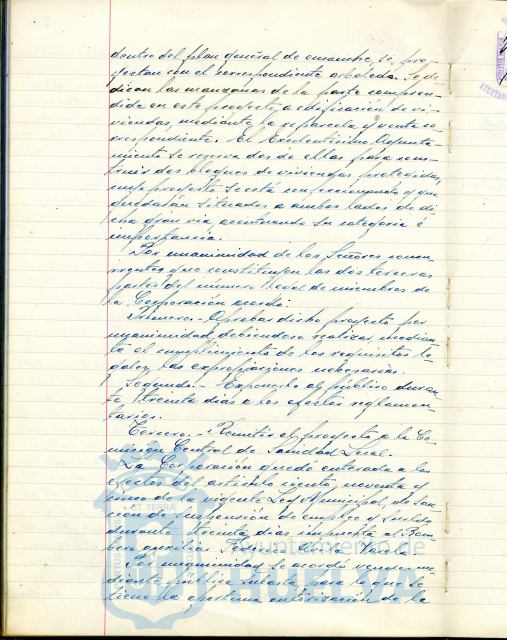 dentro del plan general de ensanche, se pro-
yectan con el correspondiente arbolado. Se de-
dican las manzanas de la parte compren-
dida en este proyecto, a edificación de vi-
viendas mediante la reparcela y venta co-
rrespondiente. El Excelentísimo Ayunta-
miento se reserva dos de ellas para cons-
truir dos bloques de viviendas protegidas,
cuyo proyecto se está confeccionando y que
quedarán situados a ambos lados de di-
cha gran vía, acentuando su categoría é
importancia.
Por unanimidad de los Señores concu-
rrentes que constituyen las dos terceras
partes del número legal de miembros de
la Corporación acordó:
Primero.- Aprobar dicho proyecto por
unanimidad, debiendose realizar median-
te el cumplimiento de los requisitos le-
gales, las expropiaciones necesarias.
Segundo.- Exponerlo al público duran-
te treinta días a los efectos reglamen-
tarios.
Tercero.- Remitir el proyecto a la Co-
misión Central de Sanidad Local.
La Corporación quedó enterada a los
efectos del artículo ciento noventa y
cinco de la vigente Ley Municipal, de san-
ción de suspensión de empleo y sueldo
durante treinta días impuesta al Bom-
bero auxiliar
Por unanimidad se acordó vender me-
diante pública subasta para lo que se
tiene la oportuna autorización de la
Ayuntamiento de
HUELVA